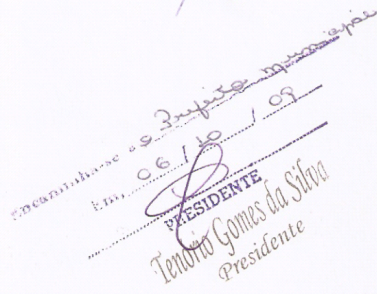 Encaminha-se ao Prefeito municipal
Em, 06 / 10 / 09
PRESIDENTE
Tenório Gomes da Silva
Presidente